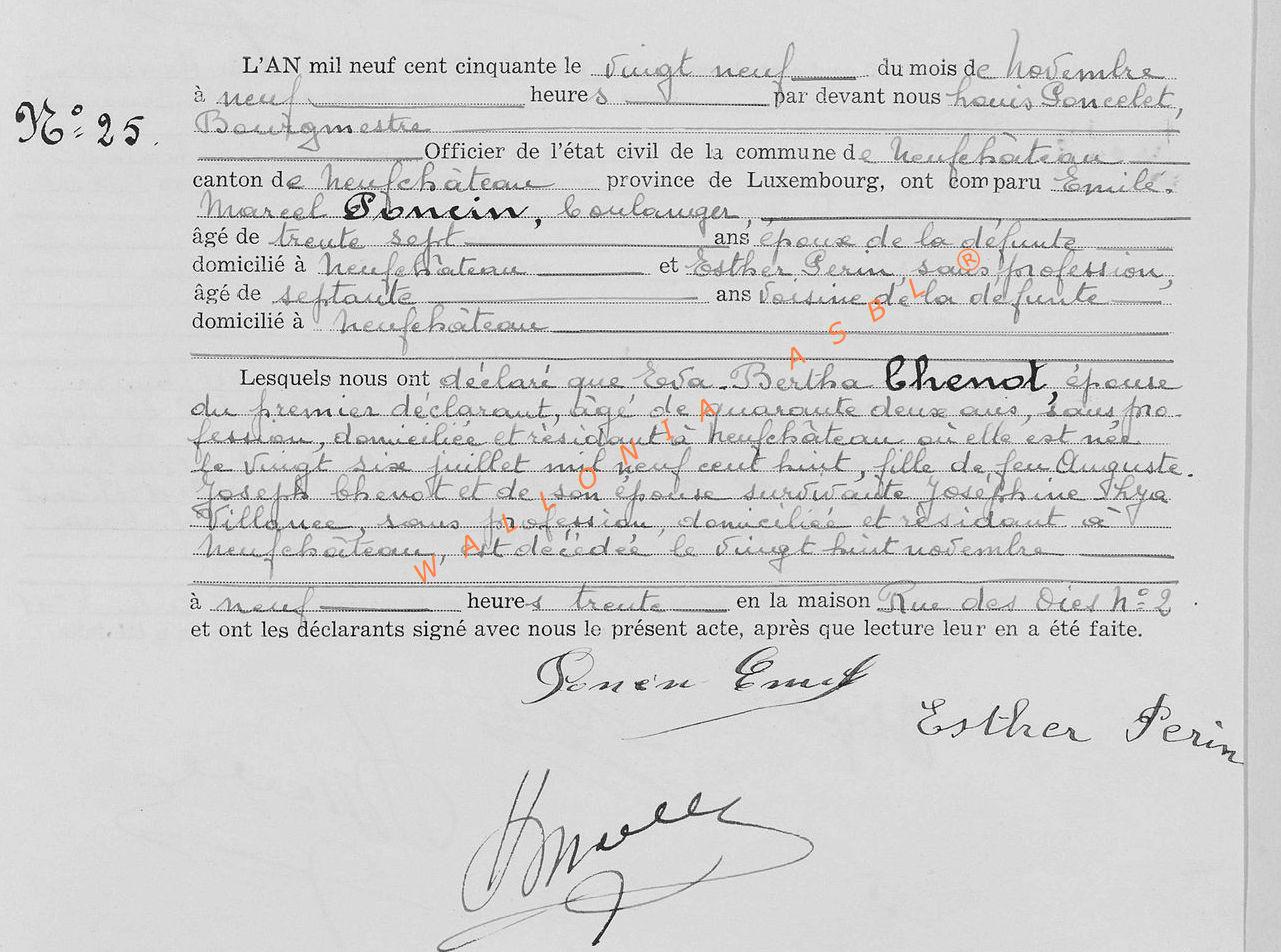 L'AN mil neuf cent cinquante le vingt neuf du mois de Novembre
à neuf heures par devant nous Louis Poncelet,
N° 25.
Bourgmestre
Officier de l'état civil de la commune de Neufchâteau
canton de Neufchâteau province de Luxembourg, ont comparu Emile.
Marcel Poncin, boulanger,
âgé de trente sept ans époux de la défunte
domicilié à Neufchâteau et Esther Perin, sans profession,
âgé de septante ans voisine de la défunte
domicilié à Neufchâteau
Lesquels nous ont déclaré que Eva. Bertha Chenot, épouse
du premier déclarant, âgé de quarante deux ans, sans pro-
fession, domiciliée et résidant à Neufchâteau où elle est née
le vingt six juillet mil neuf cent huit, fille de feu Auguste.
Joseph Chenot et de son épouse survivante Joséphine
Villance, sans profession, domiciliée et résidant à
Neufchâteau, est décédée le vingt huit novembre
à neuf heures trente en la maison Rue des Oies N° 2
et ont les déclarants signé avec nous le présent acte, après que lecture leur en a été faite.
Poncin Emile
Esther Perin
WALLONIA ASBL ®